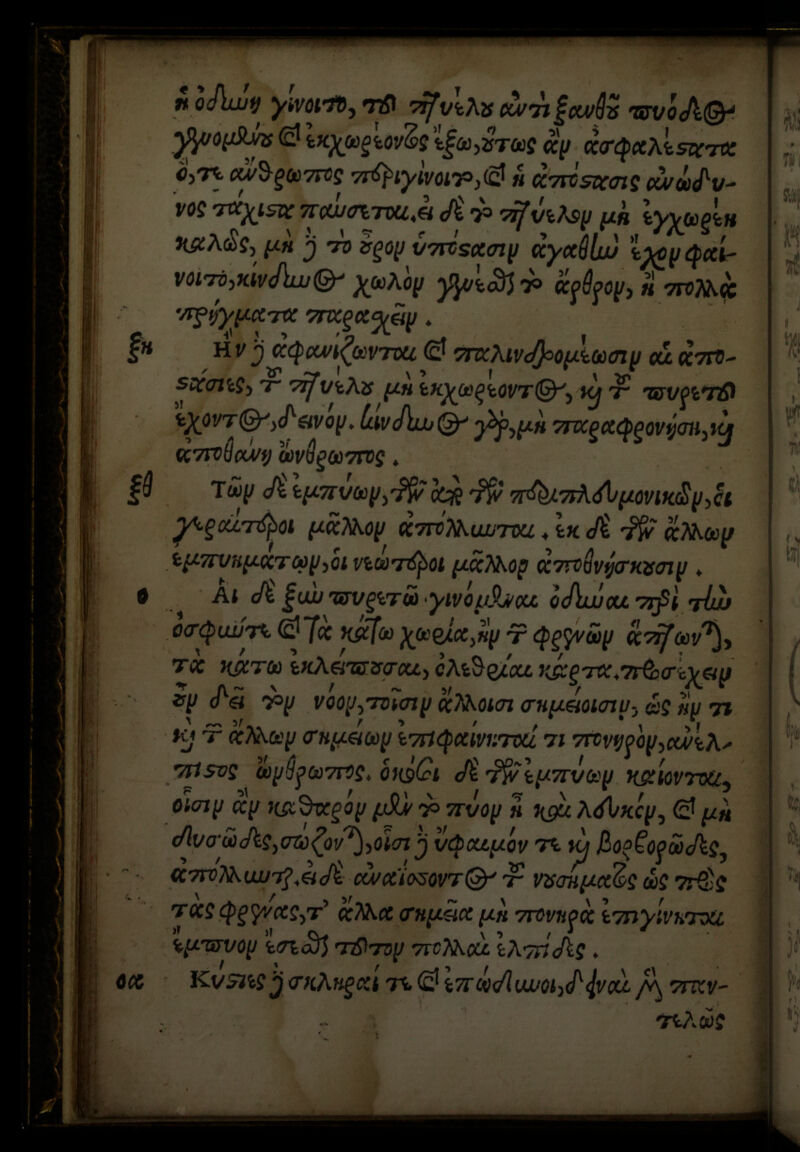 ἡ ὀδύνη γίνοιτο, τοῦ πτυέλου ἀντὶ ξανθοῦ πυόδεος
γενομένου καὶ ἐκχωρέοντος ἔξω, οὕτως ἂν ἀσφαλέστατα
ὅ, τε ἄνθρωπος περιγίνοιτο, καὶ ἡ ἀπόστασις ἀνώδυ-
νος τάχιστα παύσεται, εἰ δὲ τὸ πτύελον μὴ ἐγχωρέῃ
καλῶς, μὴ δὲ τὸ οὖρον ὑπόστασιν ἀγαθὴν ἔχον φαί-
νοιτο, κίνδυνος χωλὸν γενέσθαι τὸ ἄρθρον, ἢ πολλὰ
πρήγματα παρασχεῖν.
ξη Ἢν δὲ ἀφανίζωνται καὶ παλινδρομέωσιν αἱ ἀπο-
στάσιες, τοῦ πτυέλου μὴ ἐκχωρέοντος, καὶ τοῦ πυρετοῦ
ἔχοντος, δεινόν. κίνδυνος γὰρ, μὴ παραφρονήσῃ, καὶ
ἀποθάνῃ ὥνθρωπος.
ξθ Τῶν δὲ ἐμπύων, τῶν ἀπὸ τῶν περιπλευμονικῶν, οἱ
γεραίτεροι μᾶλλον ἀπόλλυνται, ἐκ δὲ τῶν ἄλλων
ἐμπυημάτων, οἱ νεώτεροι μᾶλλον ἀποθνήσκουσιν.
ο Αἱ δὲ ξὺν πυρετῷ γινόμεναι ὀδύναι περὶ τὴν
ὀσφύν τε καὶ τὰ κάτω χωρία, ἢν τῶν φρενῶν ἅπτωνται,
τὰ κάτω ἐκλείπουσαι, ὀλεθρίαι κάρτα. προσέχειν
οὖν δεῖ τὸν νόον, τοῖσιν ἄλλοισι σημείοισιν, ὡς ἤν τι
καὶ τῶν ἄλλων σημείων ἐπιφαίνηταί τι πονηρὸν, ἀνέλ-
πιστος ὥνθρωπος. ὁκόσοι δὲ τῶν ἐμπύων καίονται,
οἷσιν ἂν καθαρὸν μὲν τὸ πύον ᾖ καὶ λευκὸν, καὶ μὴ
δυσῶδες, σώζονται, οἷσι δὲ ὕφαιμόν τε καὶ βορβορῶδες,
ἀπόλλυνται. εἰ δὲ ἀναΐσσοντος τοῦ νοσήματος ὡς πρὸς
τὰς φρένας, τ' ἄλλα σημεῖα μὴ πονηρὰ ἐπιγίνηται
ἔμπυον ἔσεσθαι τοῦτον πολλαὶ ἐλπίδες.
οα Κύστιες δὲ σκληραί τε καὶ ἐπώδυνοι, δειναὶ μὲν παν-
τελῶς